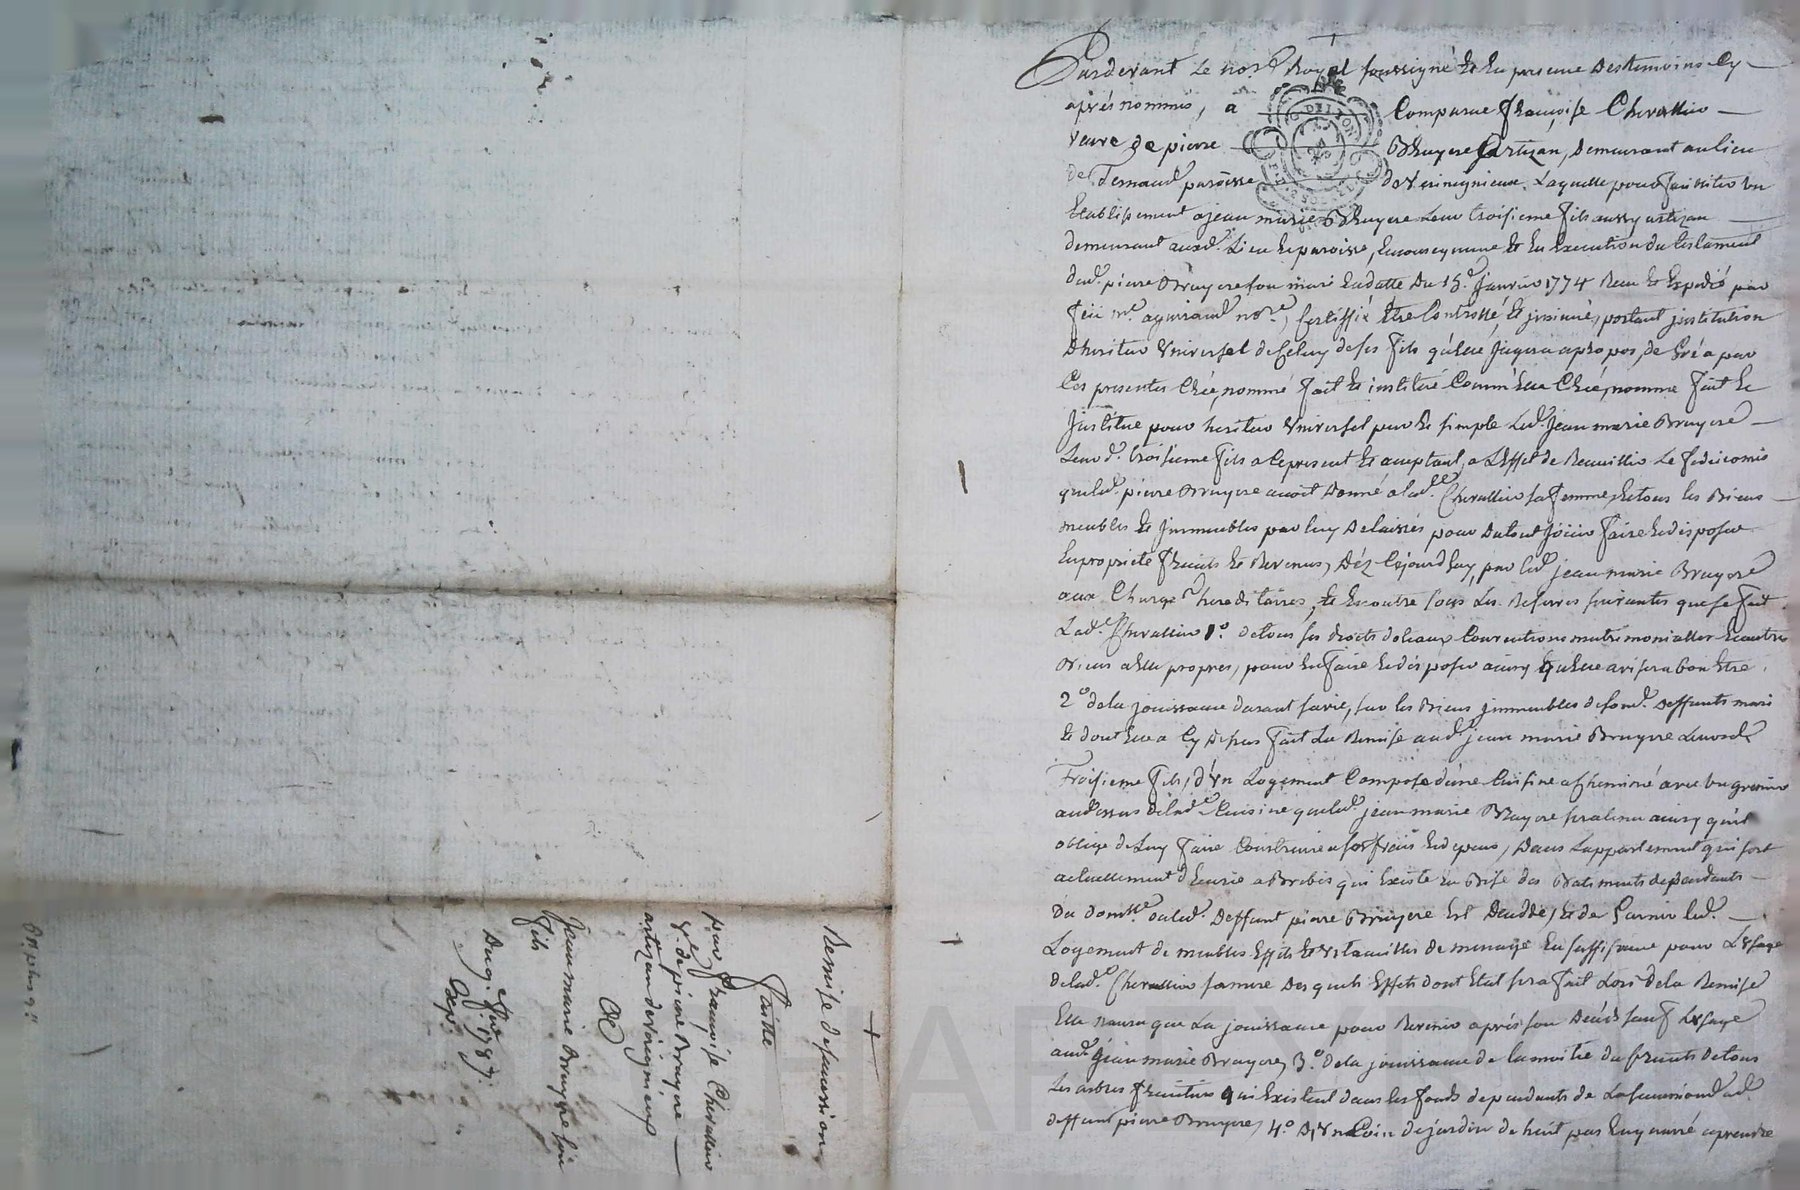 Pardevant Le no.re Royal soussigné Et En presence Des temoins Cy
après nommés, a Comparue Françoise Chevallier
veuve de pierre Bruyere Artizan, Demeurant au lieu
de paroisse de Laquelle pour faciliter un
Etablissement a jean marie Bruyere Leur troisieme fils aussy artizan
demeurant aud.t Lieu Et paroisse, En consequence Et En Execution du testament
dud. pierre Bruyere son mari En datte Du 15.e Janvier 1774 Recu Et Expedié par
feu m.e no.re, Certiffié Etre Controllé, Et jnsinué, portant jnstitution
D'heritier Universel de Celuy de ses fils qu'elle jugera apropos, de Gré a par
Ces presentes Elue, nommé fait Et institué Comm'Elle Elue, nomme fait Et
Jnstitue pour heritier Universel pur Et simple Led. Jean marie Bruyere
Leur d. troisieme fils a Ce present Et acceptant, a L'Effet de Recueillir Le fideicomis
que led. pierre Bruyere avoit Donné a lad.e Chevallier sa femme, De tous les Biens
meubles Et Jmmeubles par luy Delaissés pour Du tout joüir faire Et disposer
En propriété fruits Et Revenus, Dez Cejourd'huy, par led. jean marie Bruyere
aux Charges hereditaires, Et En outre sous Les Reserves suivantes que se fait
Lad.e Chevallier 1.o de tous ses droits dotaux Conventions matrimonialles Et autres
Biens a Elle propres, pour En faire Et disposer ainsy qu'Elle avisera bon Etre.
2.o de la jouissance durant sa vie, sur les Biens jmmeubles de son d. Deffunt mari
Et dont Elle a Cy Dessus fait La Remise aud. jean marie Bruyere Leur d.
Troisieme fils, d'Un Logement Composé d'une Cuisine a Cheminé avec un grenier
au dessus de lad.e Cuisine que led. jean marie Bruyere sera tenu ainsy qu'il
oblige de Luy faire Construire a ses frais Et depens, Dans L'appartement qui sert
actuellement d'Ecurie a Brebis qui Existe En Bise des Batiments dependants
Du dom.ne ou led. Deffunt pierre Bruyere Est Decedé, Et de Garnir led.
Logement de meubles Effets Et Ustancilles de menage En suffisance pour L'Usage
de lad.e Chevallier sa mere Des quels Effets dont Etat sera fait Lors de la Remise
Elle n'aura que La jouissance pour Revenir après son Décès sauf L'Usage
aud. Jean marie Bruyere, 3.o de la jouissance de la moitié du fruits de tous
Les arbres fruitiers qui Existent dans les fonds dependants de La succession dud.
deffunt pierre Bruyere, 4.o D'Un Coin de jardin de huit pas En quarré a prendre
Remise de succession
faitte
par Françoise Chevallier
V.e de pierre Bruyere
artizan de
a
Jean marie Bruyere son
fils
Du 9. 1787.
Exp.